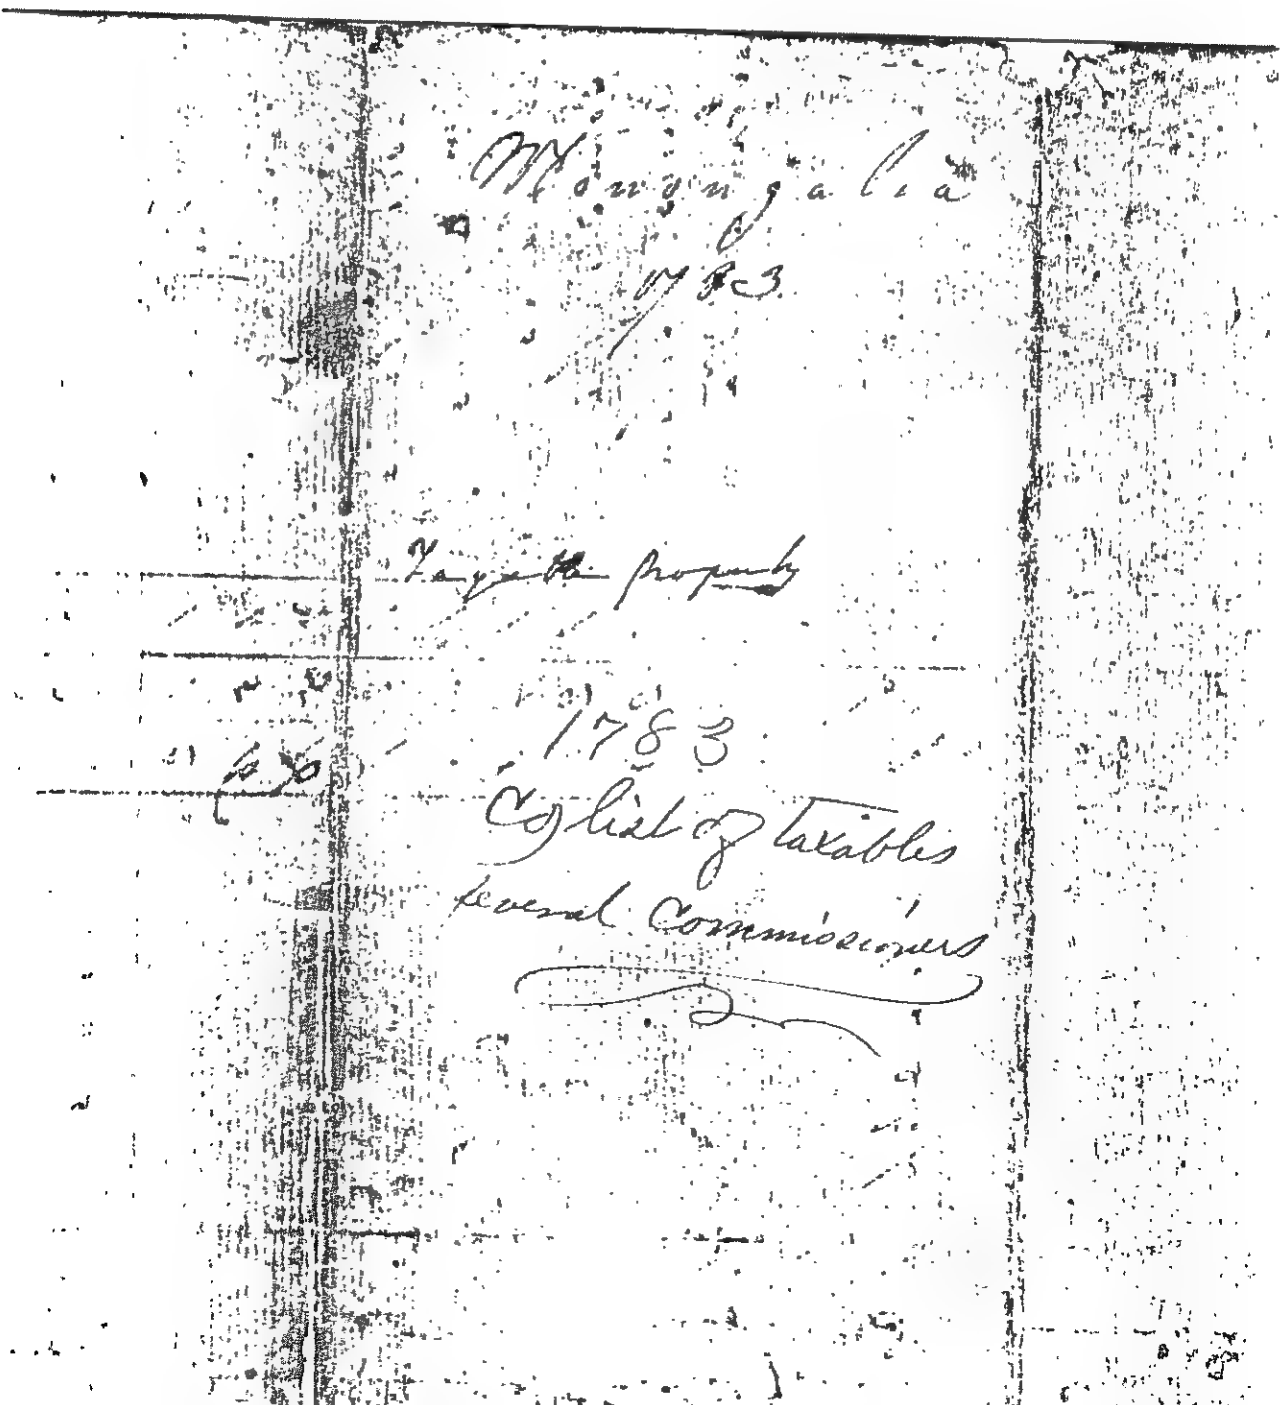 Monongalia
1783
Property
1783
Co list of Taxables
several Commissioners